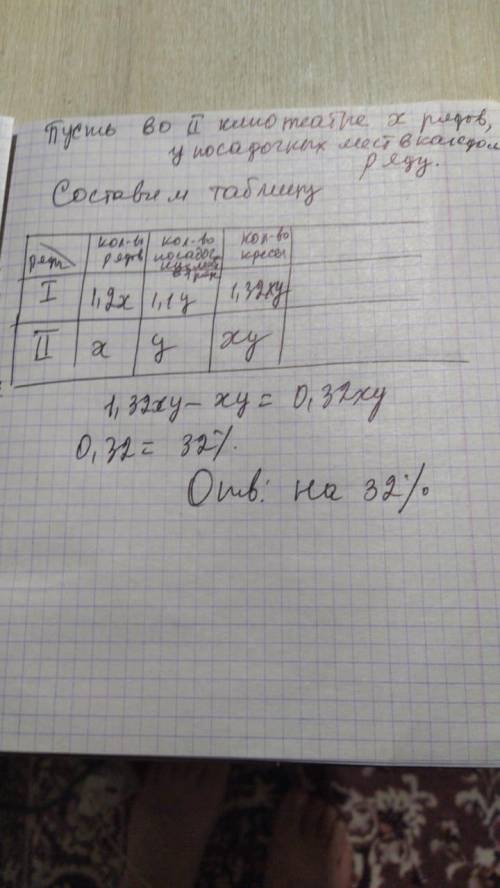 Пусть во II кинотеатре x рядов,
y посадочных мест в каждом
ряду.
Составим таблицу
кол-во рядов кол-во посадоч. кол-во кресел
I 1,2x 1,1y 1,32xy
II x y xy
1,32xy - xy = 0,32xy
0,32 = 32%.
Отв: на 32%